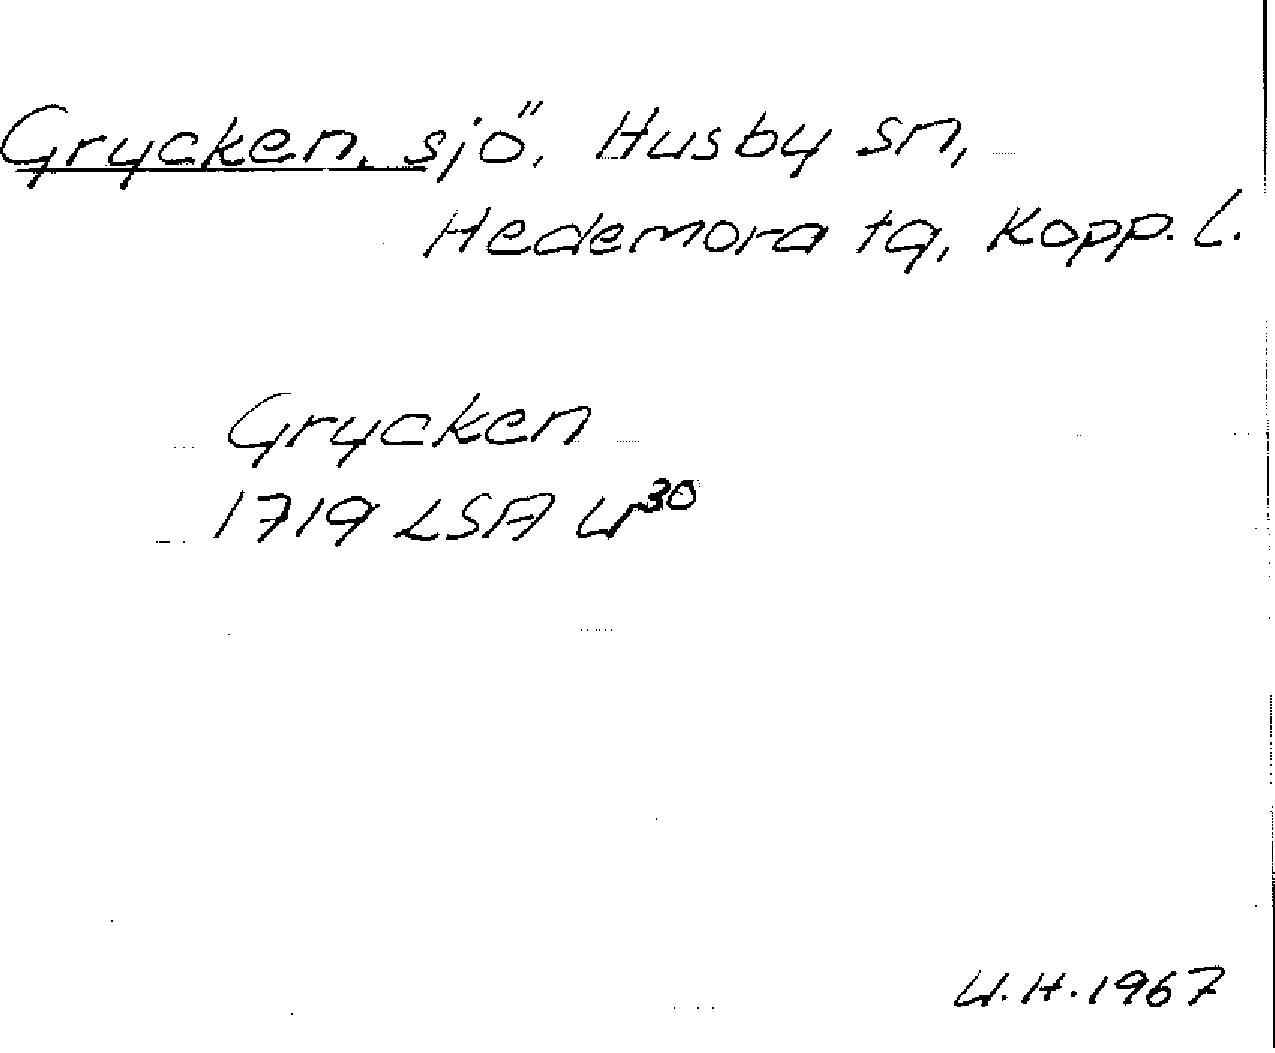 Grycken, sjö, Husby sn,
Hedemora tg, Kopp. L.
Grycken
1719 LSA U³⁰
U.H. 1967